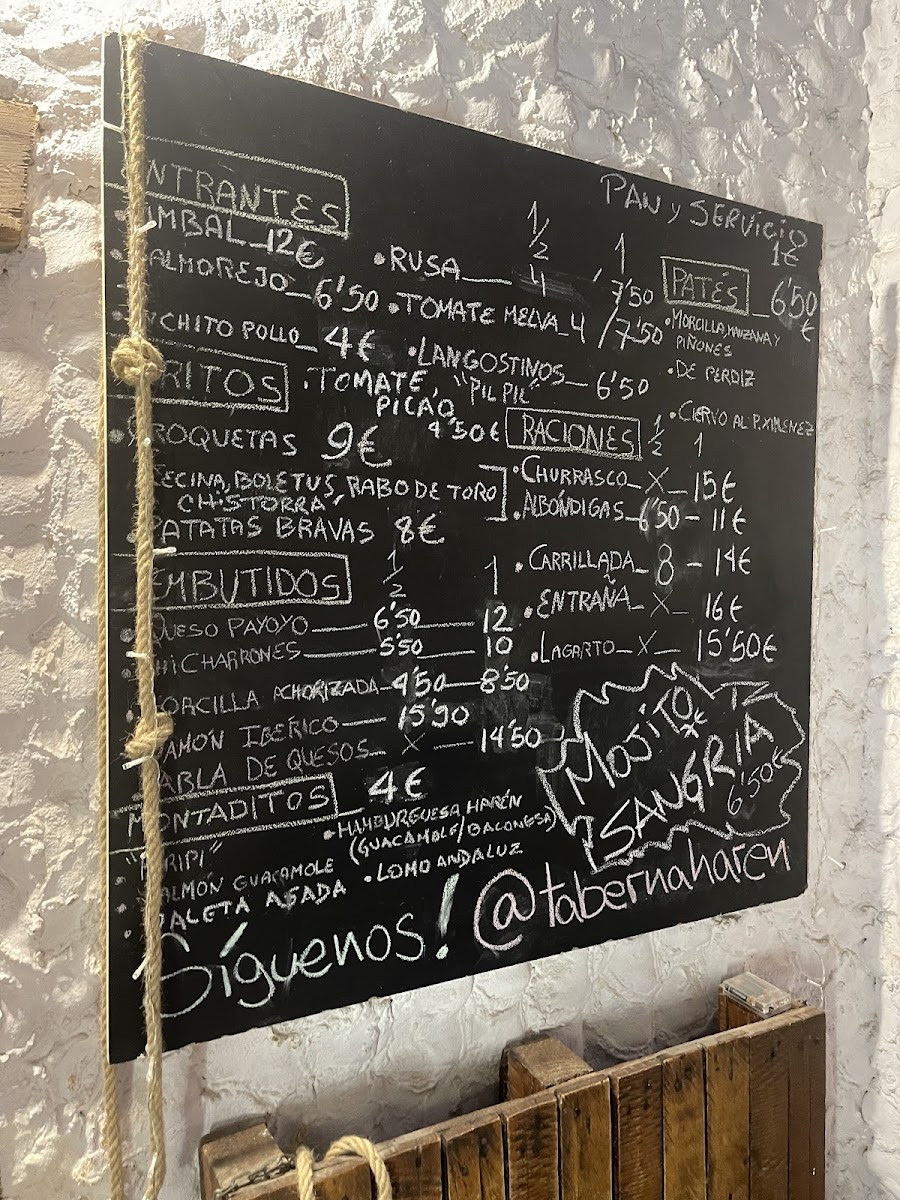 ENTRANTES
TIMBAL 12€
SALMOREJO 6'50
PINCHITO POLLO 4€
½ 1
• RUSA 4 / 7'50
• TOMATE MELVA 4 / 7'50
• LANGOSTINOS "PIL PIL" 6'50
• TOMATE PICAO 4'50€
PAN y SERVICIO 1€
PATÉS 6'50 €
• MORCILLA, MANZANA Y PIÑONES
• DE PERDIZ
• CIERVO AL P. XIMENEZ
FRITOS
• CROQUETAS 9€
CECINA, BOLETUS, RABO DE TORO
CHISTORRA,
• PATATAS BRAVAS 8€
RACIONES ½ 1
• CHURRASCO X 15€
• ALBÓNDIGAS 6'50 - 11€
• CARRILLADA 8 - 14€
• ENTRAÑA X 16€
• LAGARTO X 15'50€
EMBUTIDOS ½ 1
• QUESO PAYOYO 6'50 12
• CHICHARRONES 5'50 10
• MORCILLA ACHORIZADA 4'50 8'50
JAMÓN IBERICO 15'90
TABLA DE QUESOS X 14'50
MONTADITOS 4€
"PIRIPI"
• SALMÓN GUACAMOLE
• PALETA ASADA
• HAMBURGUESA HARÉN
(GUACAMOLE/BALONESA)
• LOMO ANDALUZ
MOJITO
SANGRIA 6'50€
Síguenos! @tabernaharen